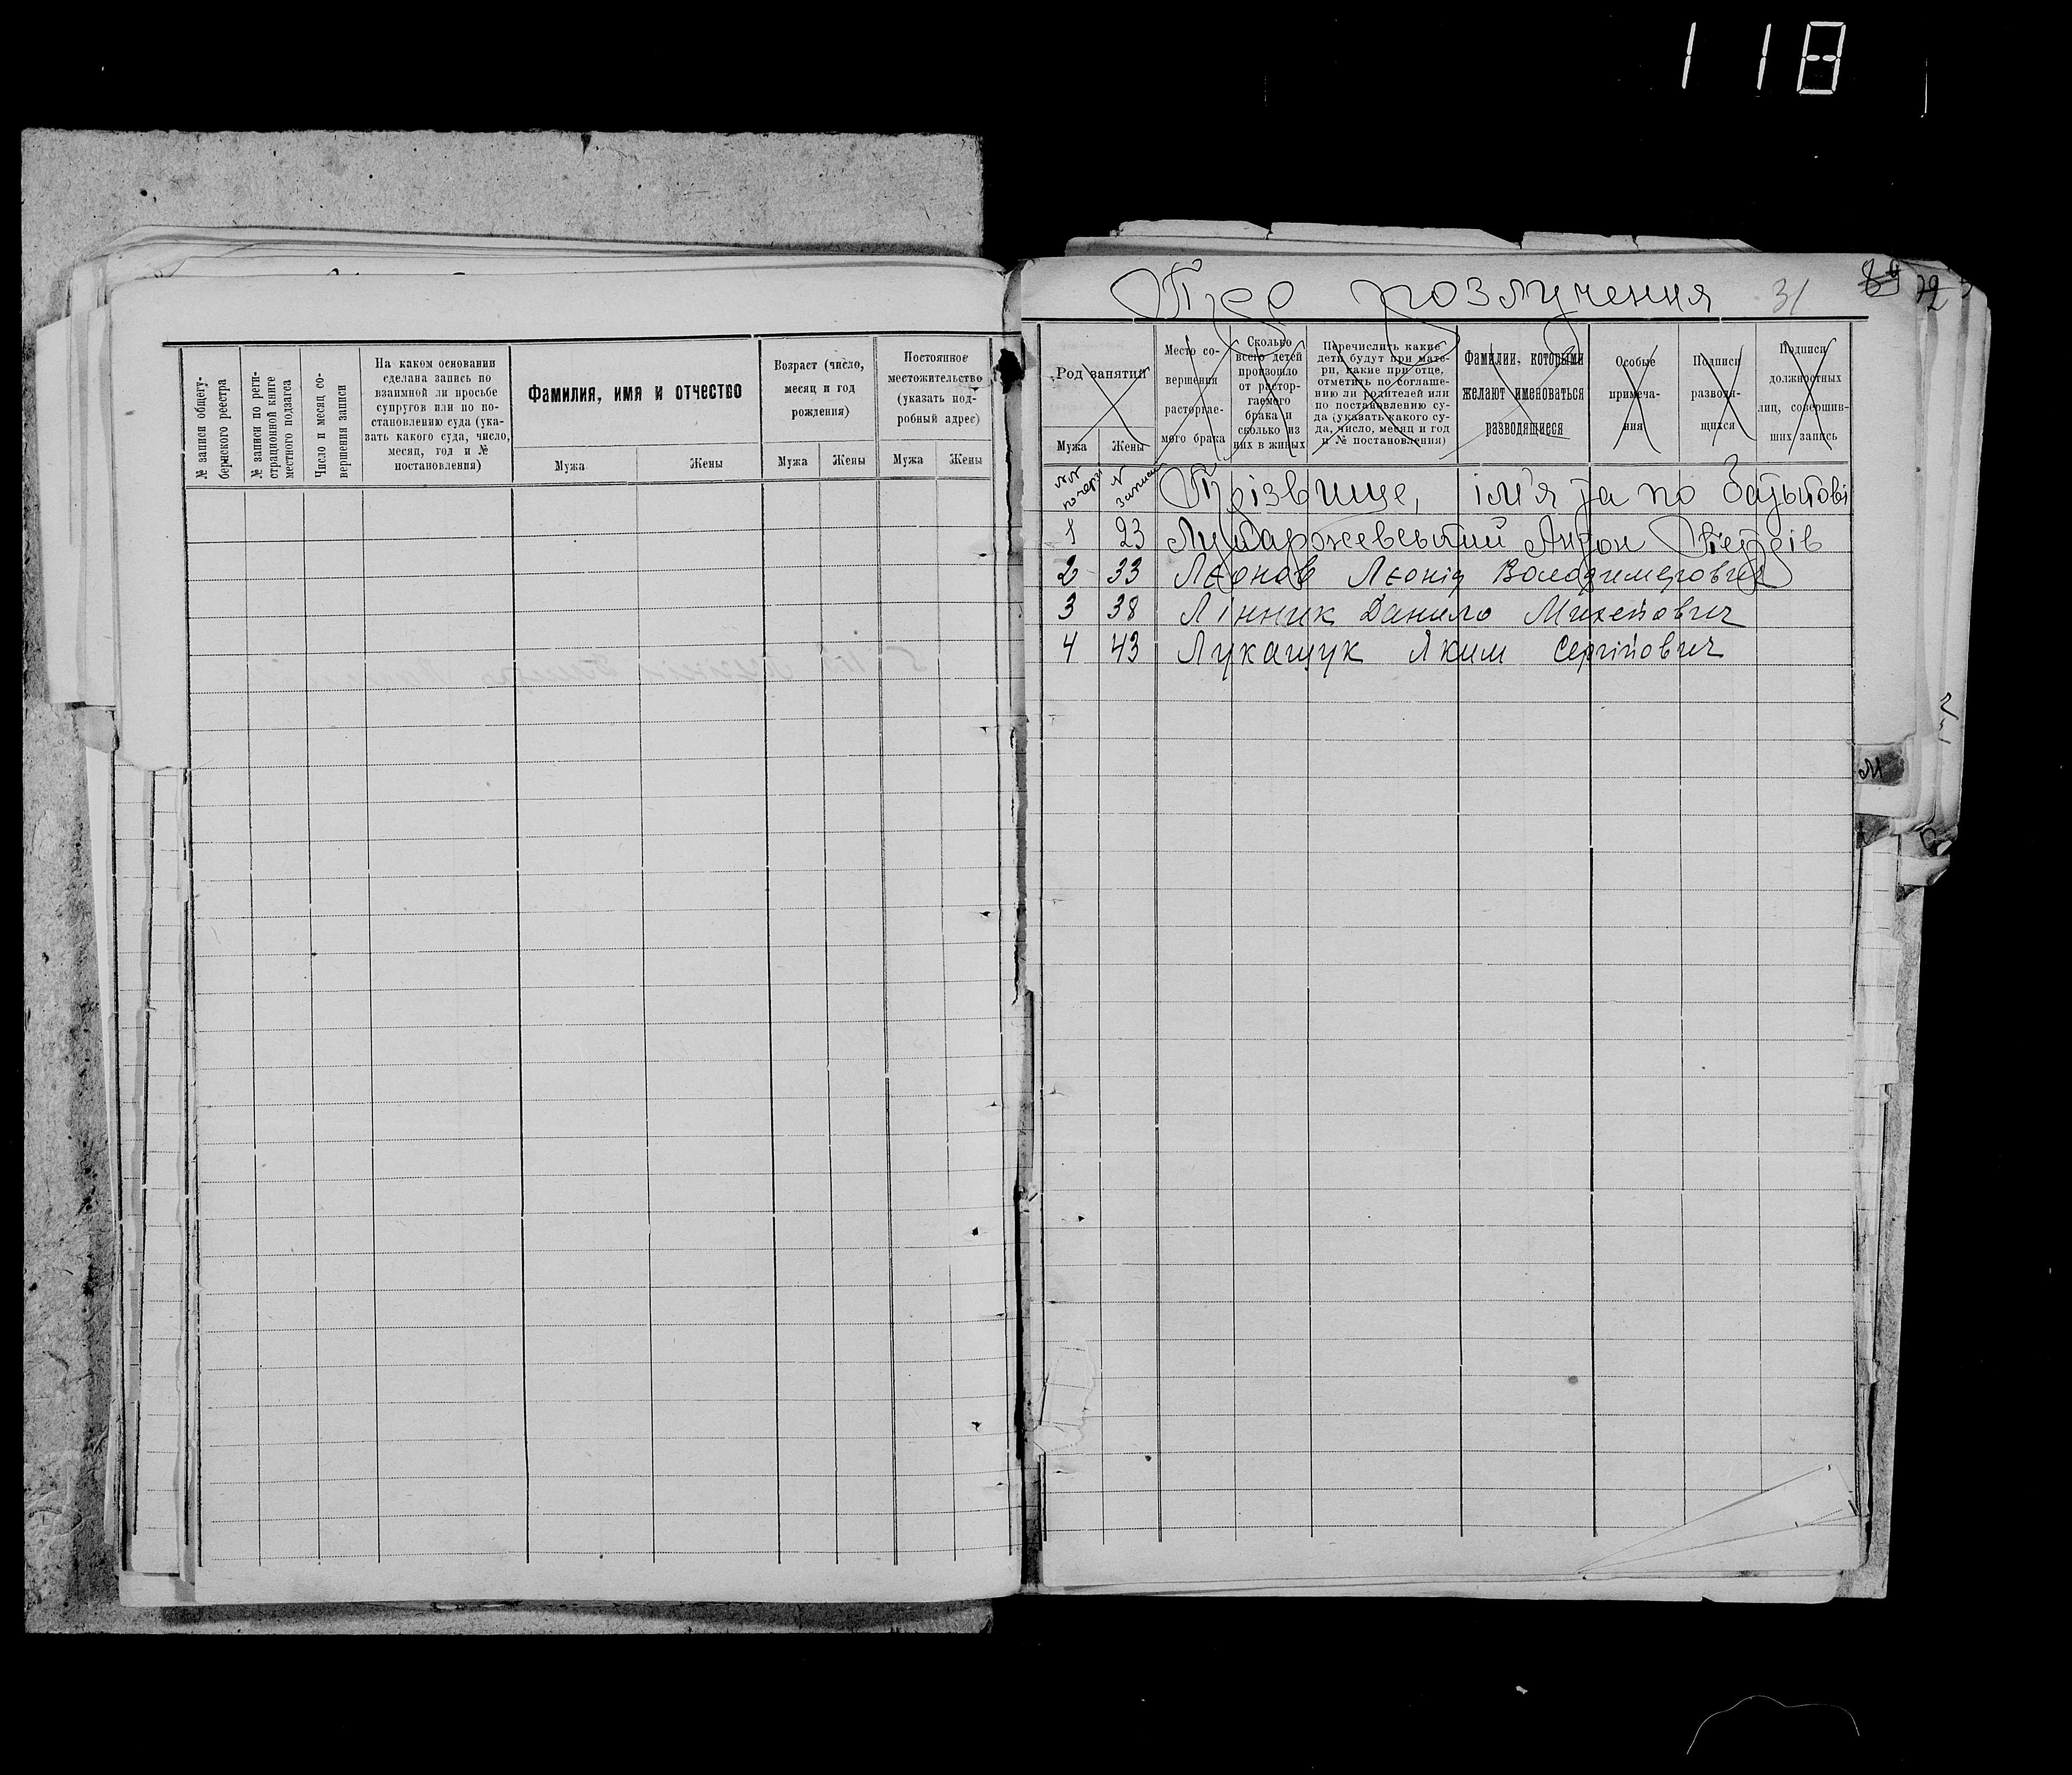 118
Про розлучення 31
72
№ записи общегу-
бернского реестра
№ записи по реги-
страционной книге
местного подзагса
Число и месяц со-
вершения записи
На каком основании
сделана запись по
взаимной ли просьбе
супругов или по по-
становлению суда (ука-
зать какого суда, число,
месяц, год и №
постановления)
Фамилия, имя и отчество
Мужа Жены
Возраст (число,
месяц и год
рождения)
Мужа Жены
Постоянное
местожительство
(указать под-
робный адрес)
Мужа Жены
Род занятий
Мужа Жены
Место со-
вершения
расторгае-
мого брака
Сколько
всего детей
произошло
от растор-
гаемого
брака и
сколько из
них в живых
Перечислить какие
дети будут при мате-
ри, какие при отце,
отметить по соглаше-
нию ли родителей или
по постановлению су-
да (указать какого су-
да, число, месяц и год
и № постановления)
Фамилии, которыми
желают именоваться
разводящиеся
Особые
примеча-
ния
Подписи
разводя-
щихся
Подписи
должностных
лиц, совершив-
ших запись
№№ по черзі № записи Прізвище, ім'я та по батькові
1 23 Антон
2 33 Леонов Леонід Володимерович
3 38 Лінник Данило Михейович
4 43 Лукащук Яким Сергійович
М